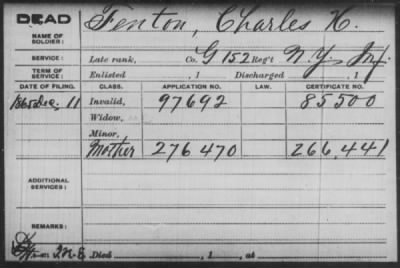 DEAD
NAME OF SOLDIER: Fenton, Charles H.
SERVICE: Late rank, Co. G 152 Reg't N.Y. Inf.
TERM OF SERVICE: Enlisted , 1 Discharged , 1
DATE OF FILING. CLASS. APPLICATION NO. LAW. CERTIFICATE NO.
1865 Dec, 11 Invalid, 97692 85500
Widow,
Minor,
Mother 276470 266,441
ADDITIONAL SERVICES:
REMARKS:
Died , 1 , at